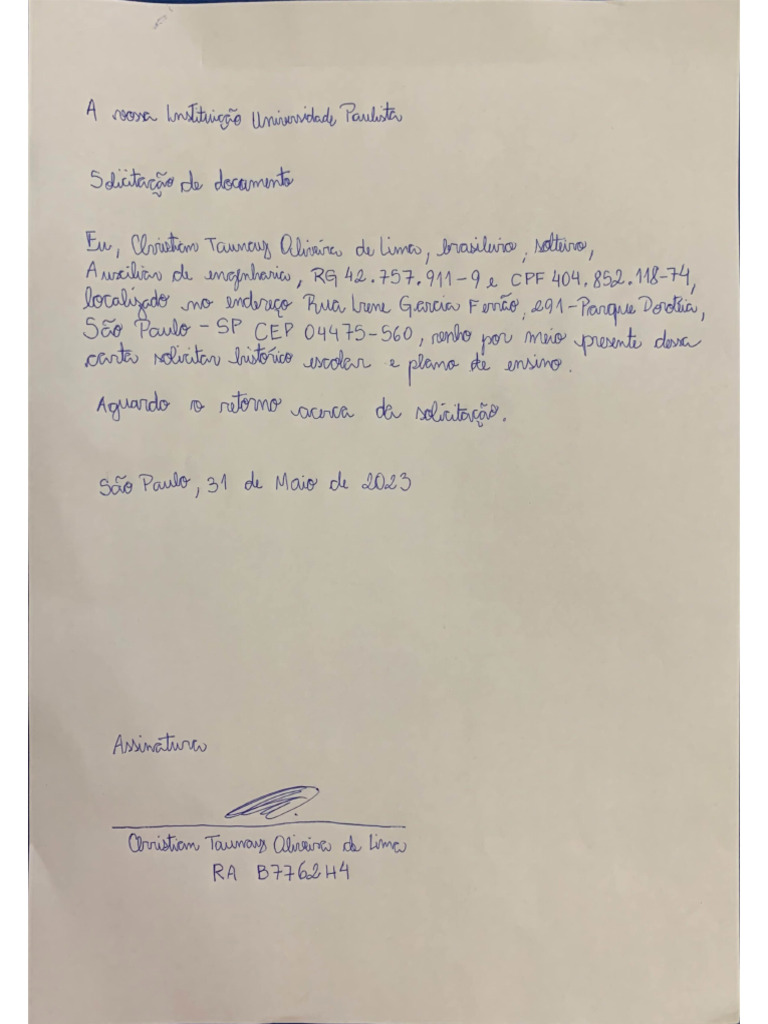 A nossa Instituição Universidade Paulista
Solicitação de documento
Eu, Christian Taunay Oliveira de Lima, brasileiro, solteiro,
Auxiliar de engenharia, RG 42.757.911-9 e CPF 404.852.118-74,
localizado no endereço Rua Irene Garcia Ferrão, 291-Parque Dorotéia,
São Paulo - SP CEP 04475-560, venho por meio presente dessa
carta solicitar histórico escolar e plano de ensino.
Aguardo o retorno acerca da solicitação.
São Paulo, 31 de Maio de 2023
Assinatura
Christian Taunay Oliveira de Lima
RA B7762H4